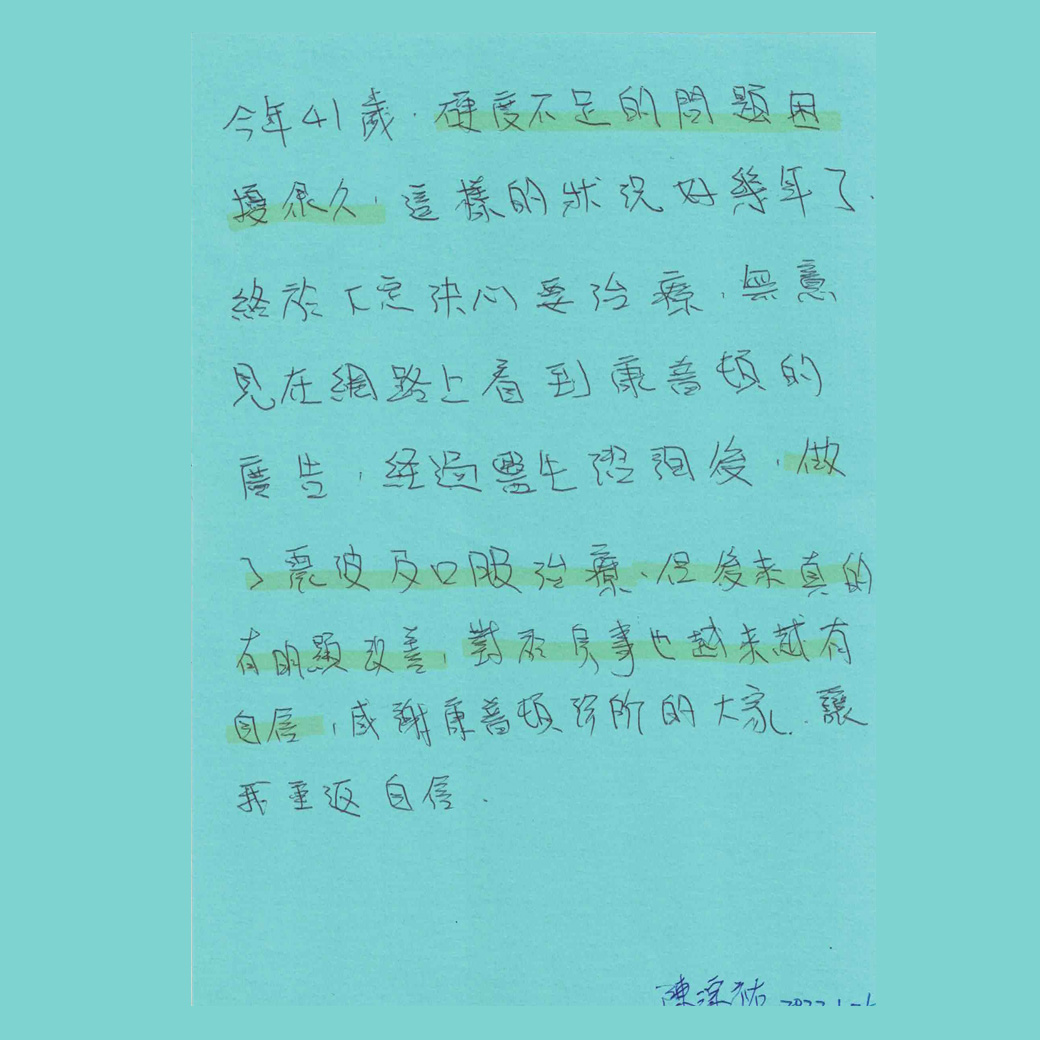 今年41歲，硬度不足的問題困
擾很久，這樣的狀況好幾年了，
終於下定決心要治療，無意
見在網路上看到康普頓的
廣告，経過醫生諮詢後，做
了震波及口服治療、但後来真的
有明顯改善，對於房事也越来越有
自信，感謝康普頓診所的大家，讓
我重返自信．
陳 祐 2022.1